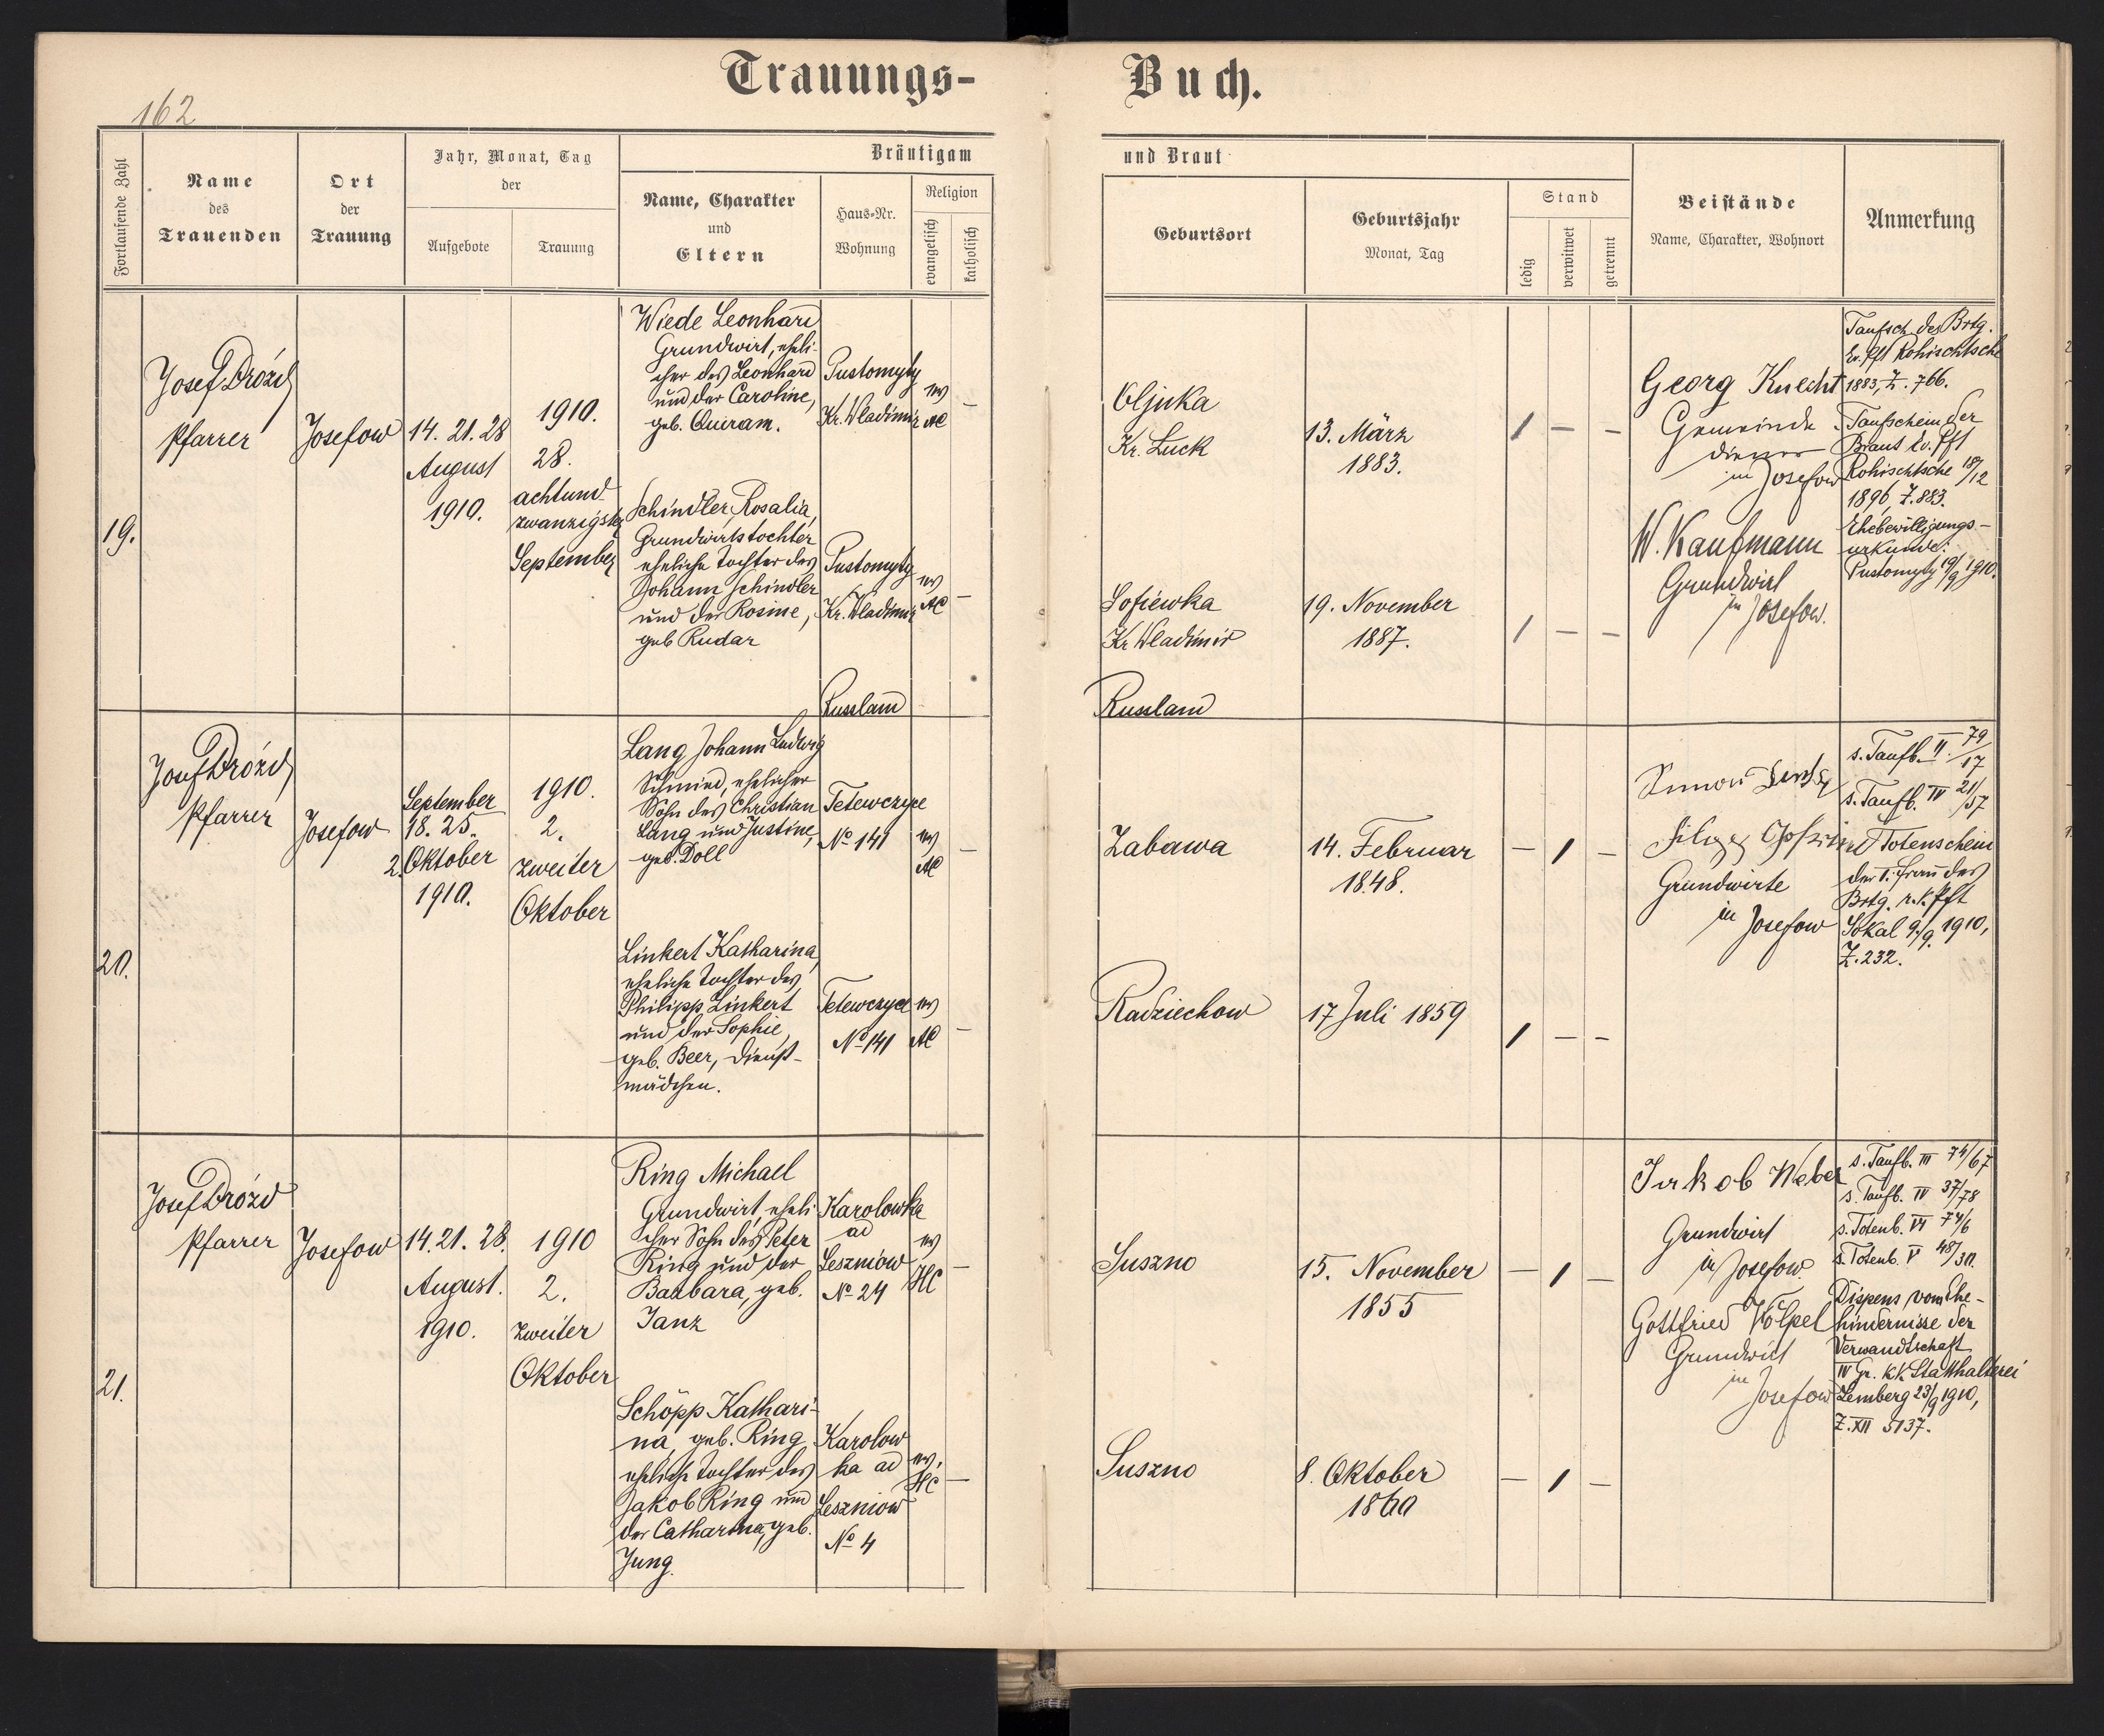 162
Trauungs-
Buch.
Fortlaufende Zahl
Name
des
Trauenden
Ort
der
Trauung
Jahr, Monat, Tag
der
Aufgebote
Trauung
Bräutigam
Name, Charakter
und
Eltern
Haus-Nr.
Wohnung
Religion
evangelisch
katholisch
und Braut
Geburtsort
Geburtsjahr
Monat, Tag
Stand
ledig
verwitwet
getrennt
Beistände
Name, Charakter, Wohnort
Anmerkung
19.
Josef Drózd
Pfarrer
Josefow
14. 21. 28
August
1910.
1910.
28.
achtund-
zwanzigster
September
Wiede Leonhard
Grundwirt, eheli-
cher des Leonhard
und der Caroline,
geb. Quiram.
Pustomyty
Kr. Wladimir
ev
AC
–
Oljuka
Kr. Luck
13. März
1883.
/ – –
Schindler Rosalia,
Grundwirtstochter
eheliche Tochter des
Johann Schindler
und der Rosine,
geb Rudar
Pustomyty
Kr. Wladimir
ev
AC
–
Russland
Sofiewka
Kr Wladimir
Russland
19. November
1887.
/ – –
Georg Knecht
Gemeinde
diener
in Josefow
W. Kaufmann
Grundwirt
in Josefow.
Taufsch. des Brtg.
Ev. Pft Rohischtsche
1883, Z. 766.
Taufschein der
Braut Ev. Pft
Rohischtsche 18/12
1896, Z. 883.
Ehebewilligungs-
urkunde:
Pustomyty 19/9 1910.
20.
Josef Drózd
Pfarrer
Josefow
September
18. 25.
2. Oktober
1910.
1910.
2.
zweiter
Oktober
Lang Johann Ludwig
Schmied, ehelicher
Sohn des Christian
Lang und Justine,
geb. Doll
Tetewczyce
No 141
ev
AC
–
Zabawa
14. Februar
1848.
– / –
Linkert Katharina,
eheliche Tochter des
Philipp Linkert
und der Sophie,
geb. Beer, Dienst-
mädchen.
Tetewczyce
No 141
ev
AC
–
Radziechow
17 Juli 1859
/ – –
Grundwirte
in Josefow
s. Taufb. II. 79/17
s. Taufb. IV 21/57
Totenschein
der I. Frau des
Brtg. r. k. Pft
Sokal 9./9. 1910,
Z. 232.
21.
Josef Drózd
Pfarrer
Josefow
14. 21. 28.
August.
1910.
1910
2.
zweiter
Oktober
Ring Michael
Grundwirt, eheli
cher Sohn des Peter
Ring und der
Barbara, geb.
Janz
Karolowka
ad
Leszniow
No 24
ev
HC
–
Suszno
15. November
1855
– / –
Schöpp Kathari-
na, geb. Ring
eheliche Tochter des
Jakob Ring und
der Catharina, geb.
Jung.
Karolow
ka ad
Leszniow
No 4
ev.
HC
–
Suszno
8. Oktober
1860
– / –
Jakob Weber
Grundwirt
in Josefow.
Gottfried Völpel
Grundwirt
in
Josefow
s. Taufb. III 74/67
s. Taufb. IV 37/78
s. Totenb. VI 74/6
s. Totenb. V 48/30.
Dispens vom Ehe-
hindernisse der
Verwandtschaft
IV Gr. k.k. Statthalterei
Lemberg 23/9 1910,
Z. XII 5137.